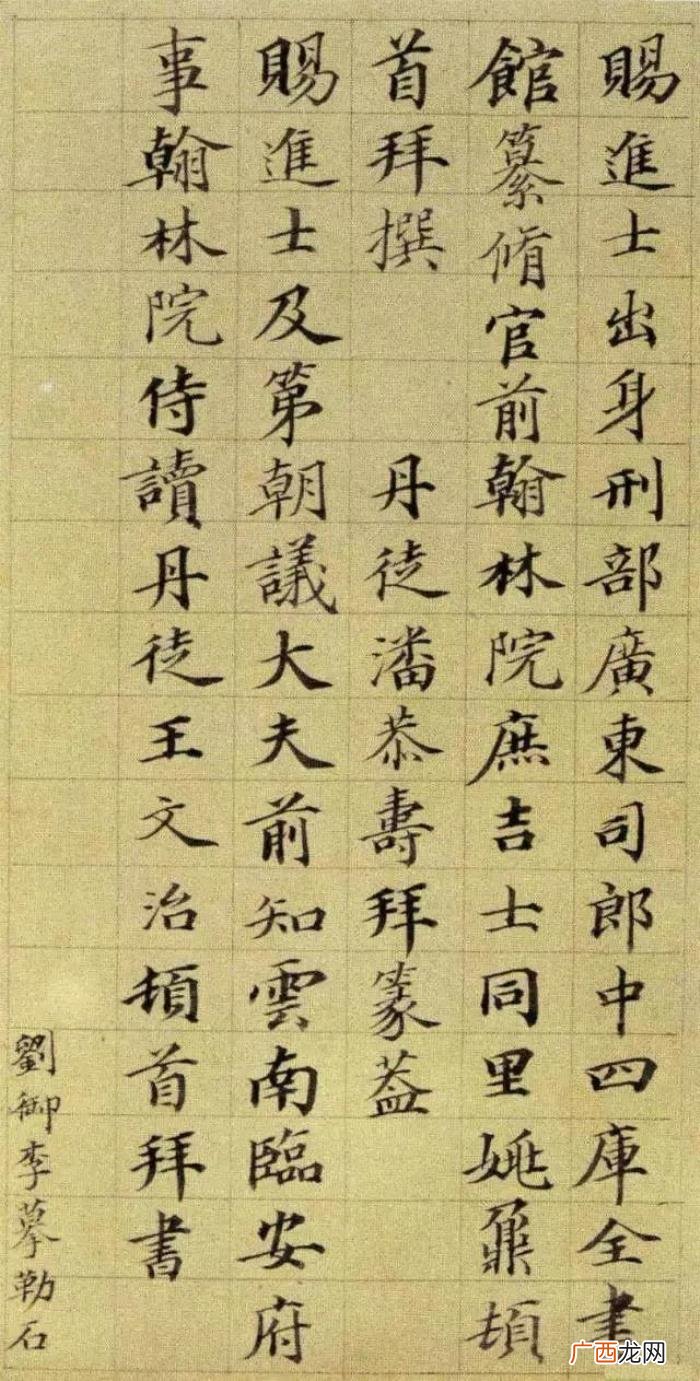 賜進士出身刑部廣東司郎中四庫全書
館纂脩官前翰林院庶吉士同里姚鼐頓
首拜撰　丹徒潘恭壽拜篆蓋
賜進士及第朝議大夫前知雲南臨安府
事翰林院侍讀丹徒王文治頓首拜書
劉御李摹勒石
广西龙网